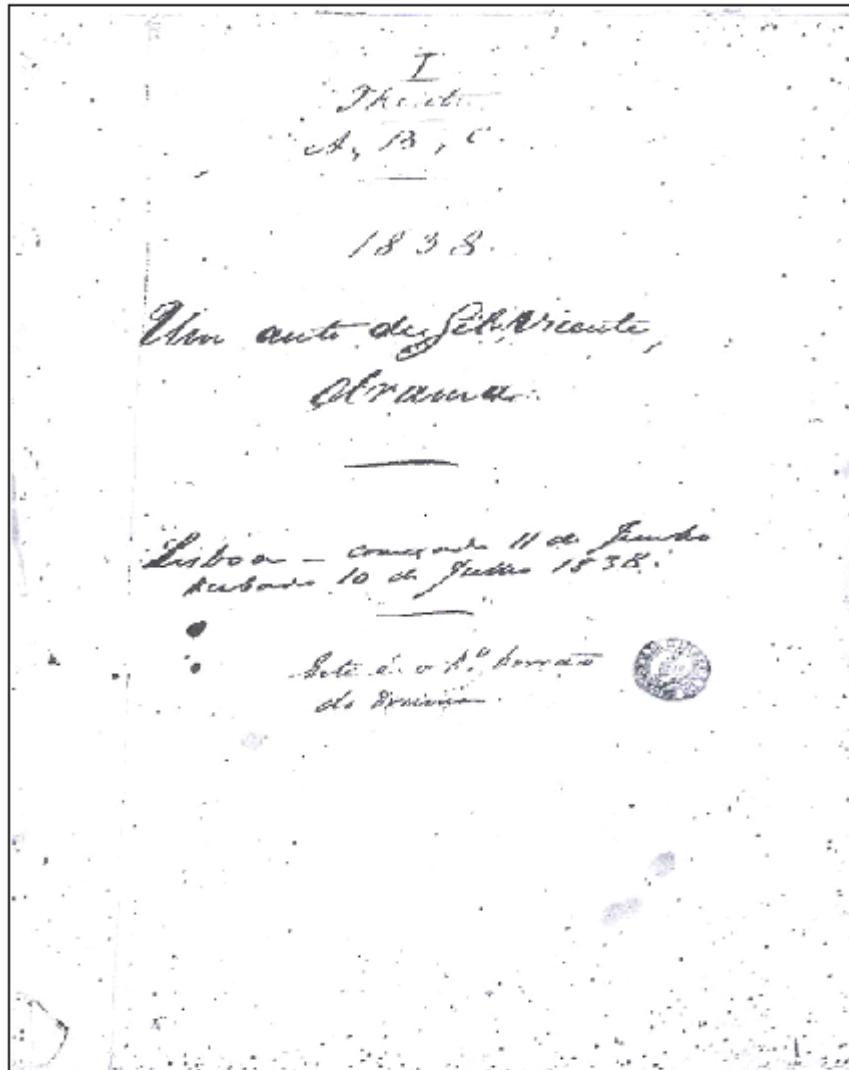 I
Theatro
A, B, C.
1838.
Um auto de Gil Vicente,
drama.
Lisboa – começado 11 de Junho
Acabado 10 de Julho 1838.
Este é o 1º borrão
do drama.